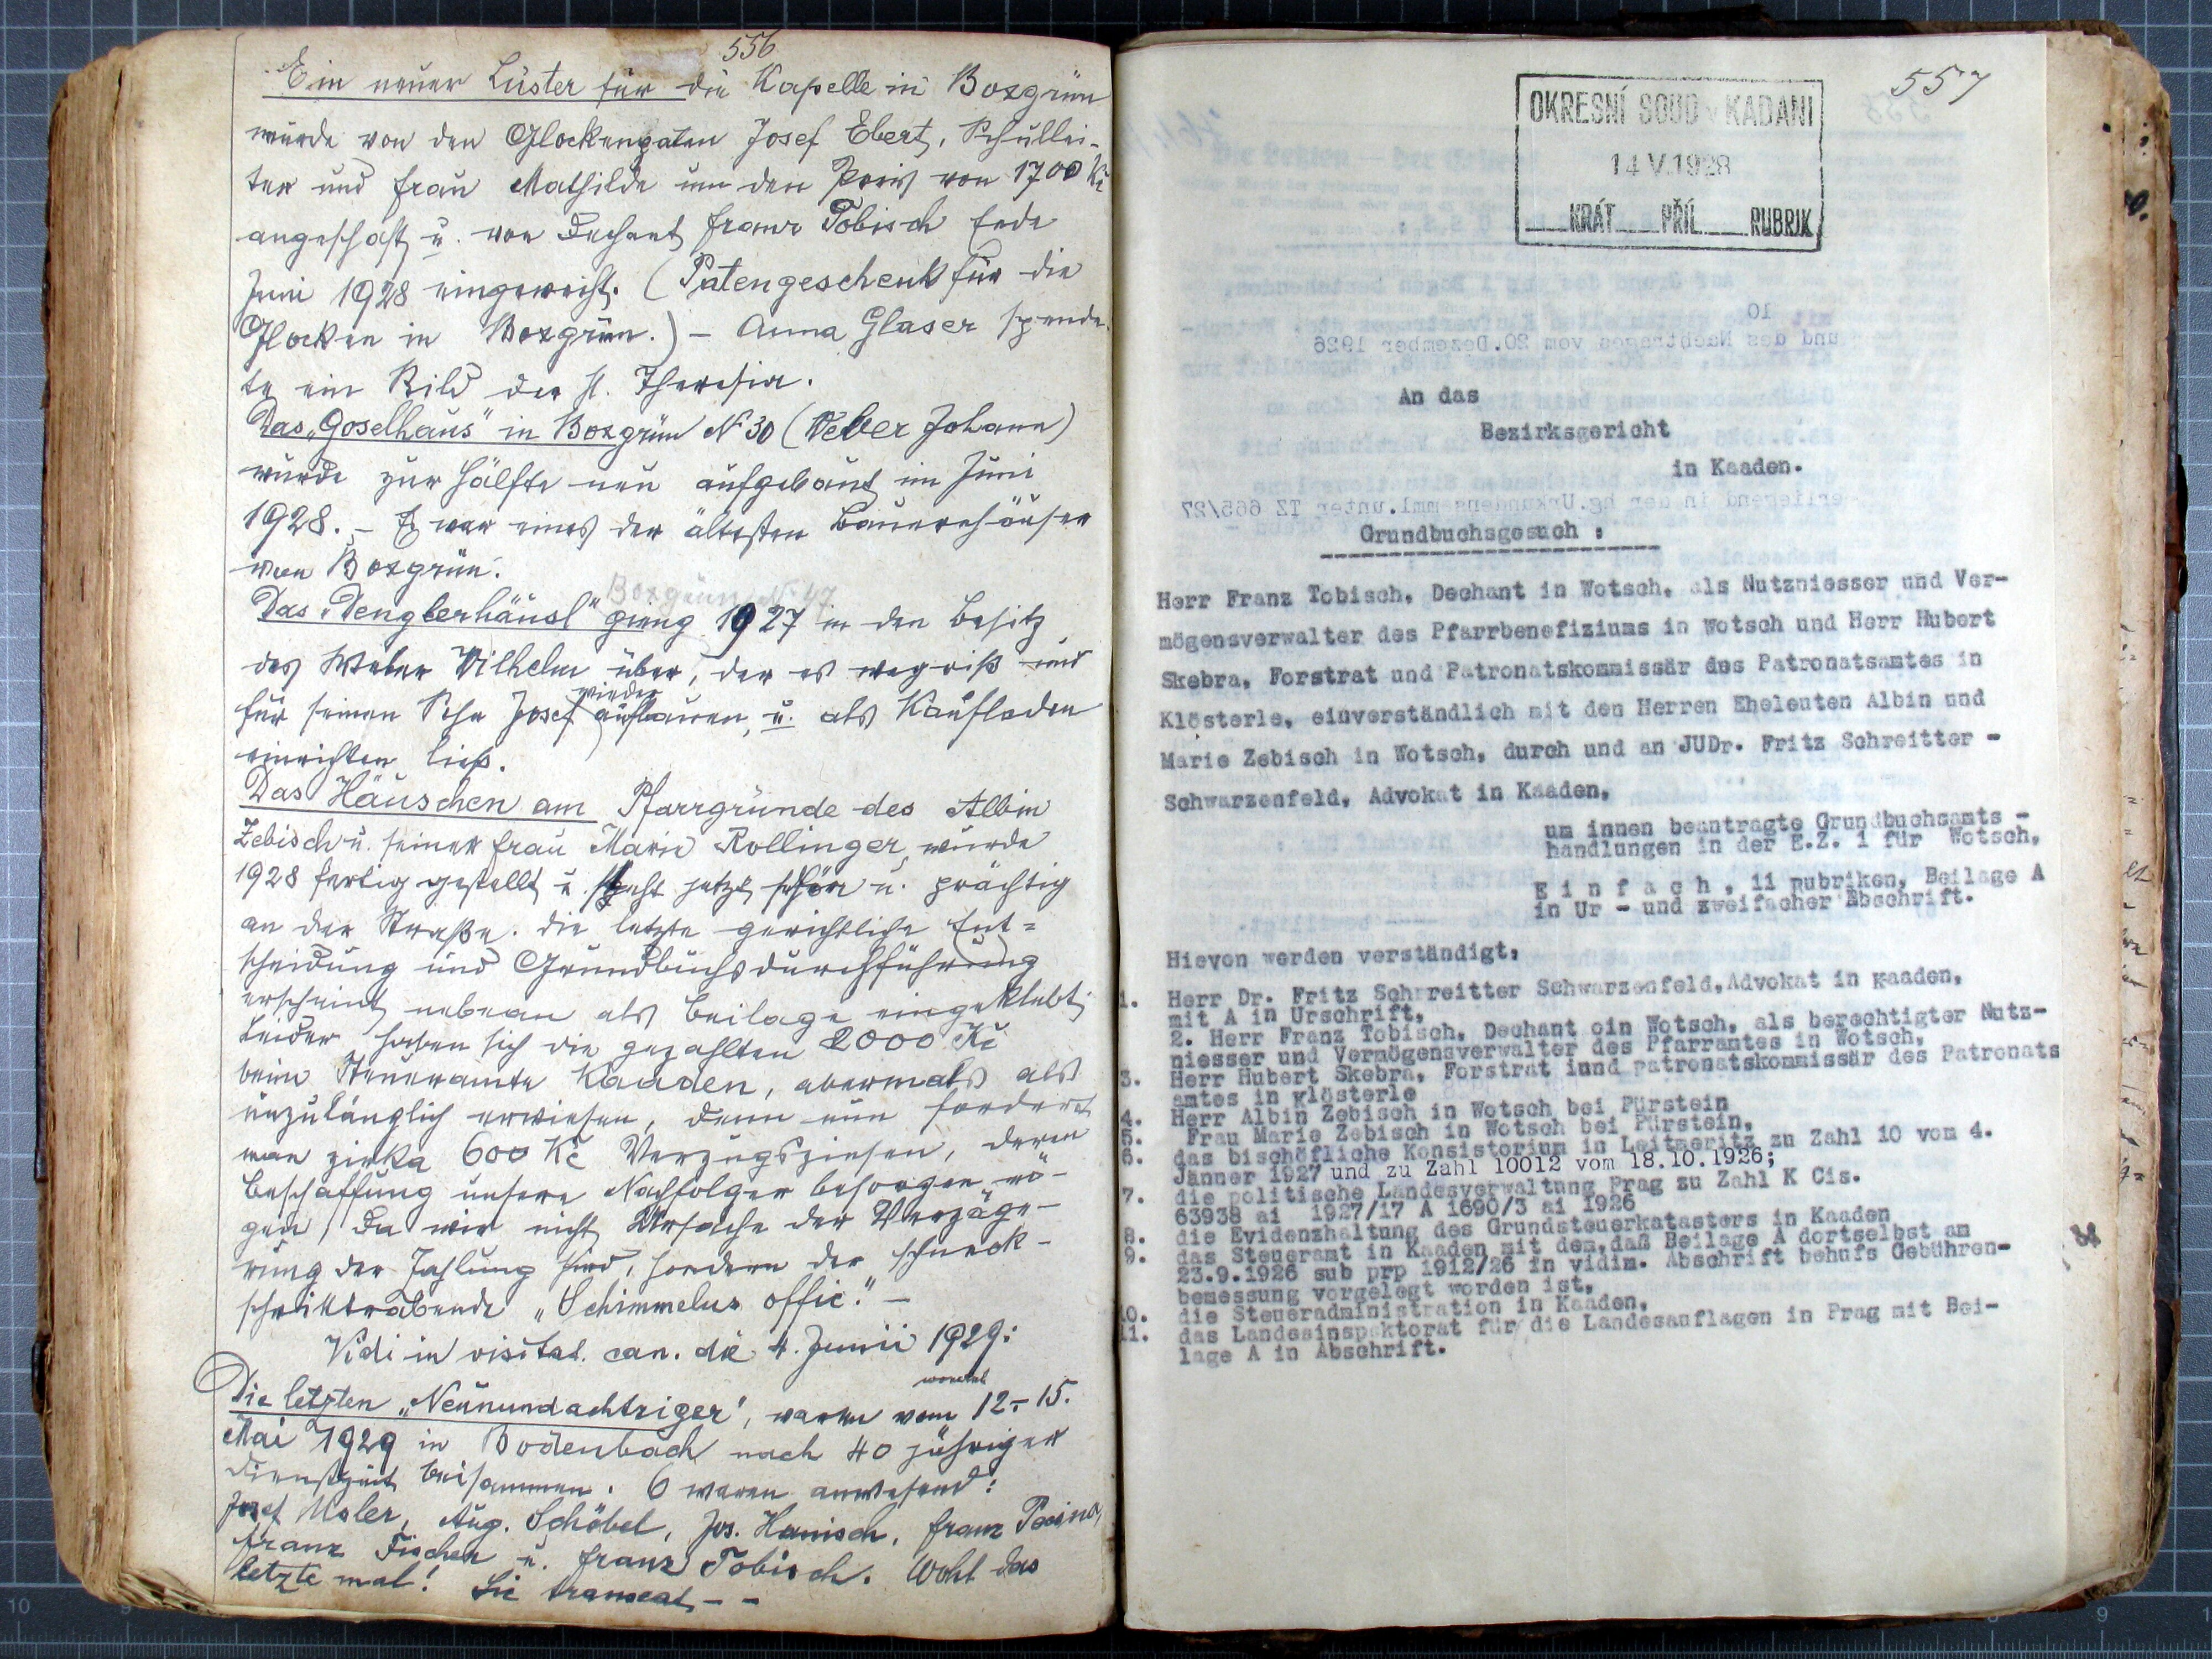 556
Ein neuer Lüster für die Kapelle in Boxgrün
wurde von den Glockenpaten Josef Ebert, Schullei-
ter und Frau Mathilde um den Preis von 1700 Kč
angeschafft u. von Dechant Franz Tobisch Ende
Juni 1928 eingeweiht. (Patengeschenk für die
Glocken in Boxgrün.) – Anna Glaser spende-
te ein Bild der hl. Theresia.
Das „Goselhaus" in Boxgrün No 30 (Weber Johann)
wurde zur Hälfte neu aufgebaut im Juni
1928. – Es war eines der ältesten Bauernhäuser
von Boxgrün.
Boxgrün No 47
Das „Denglerhäusl" gieng 1927 in den Besitz
des Weber Wilhelm über, der es wegriß und
für seinen Sohn Josef wieder aufbauen, u. als Kaufladen
einrichten ließ.
Das Häuschen am Pfarrgrunde des Albin
Zebisch u. seiner Frau Marie Rollinger wurde
1928 fertig gestellt u. steht jetzt schön u. prächtig
an der Straße. Die letzte gerichtliche Ent=
scheidung und Grundbuchsdurchführung
erscheint nebenan als Beilage eingeklebt;
Leider haben sich die gezahlten 2000 Kč
beim Steueramte Kaaden, abermals als
unzulänglich erwiesen, denn nun fordert
man zirka 600 Kč Verzugszinsen, deren
Beschaffung unsere Nachfolger besorgen mö-
gen, da wir nicht Ursache der Verzöge-
rung der Zahlung sind, sondern der schneck-
schrittrabende „Schimmelus offic." –
Vidi in visitat. can. die 4. Junii 1929:
Die letzten „Neunundachtziger", waren vom 12.– 15.
Mai 1929 in Bodenbach nach 40 jähriger
Dienstzeit beisammen. 6 waren anwesend:
Josef Usler, Aug. Schöbel, Jos. Hanisch, Franz
Franz Fischer u. Franz Tobisch. Wohl das
letzte mal! Sic transeat – –
557
OKRESNÍ SOUD v KADANI
14 V. 1928
KRÁT PŘÍL. RUBRIK
An das
Bezirksgericht
in Kaaden.
Grundbuchsgesuch :
Herr Franz Tobisch, Dechant in Wotsch, als Nutzniesser und Ver-
mögensverwalter des Pfarrbenefiziums in Wotsch und Herr Hubert
Skebra, Forstrat und Patronatskommissär des Patronatsamtes in
Klösterle, einverständlich mit den Herren Eheleuten Albin und
Marie Zebisch in Wotsch, durch und an JUDr. Fritz Schreitter -
Schwarzenfeld, Advokat in Kaaden,
um innen beantragte Grundbuchsamts -
handlungen in der E.Z. 1 für Wotsch,
E i n f a c h , 11 Rubriken, Beilage A
in Ur - und zweifacher Abschrift.
Hievon werden verständigt,
1. Herr Dr. Fritz Schrreitter Schwarzenfeld,Advokat in Kaaden,
mit A in Urschrift,
2. Herr Franz Tobisch, Dechant oin Wotsch, als berechtigter Nutz-
niesser und Vermögensverwalter des Pfarramtes in Wotsch,
3. Herr Hubert Skebra, Forstrat iund Patronatskommissär des Patronats
amtes in Klösterle
4. Herr Albin Zebisch in Wotsch bei Pürstein
5. Frau Marie Zebisch in Wotsch bei Pürstein,
6. das bischöfliche Konsistorium in Leitmeritz zu Zahl 10 vom 4.
Jänner 1927 und zu Zahl 10012 vom 18.10.1926;
7. die politische Landesverwaltung Prag zu Zahl K Cis.
63938 ai 1927/17 A 1690/3 ai 1926
8. die Evidenzhaltung des Grundsteuerkatasters in Kaaden
9. das Steueramt in Kaaden mit dem,daß Beilage A dortselbst am
23.9.1926 sub prp 1912/26 in vidim. Abschrift behufs Gebühren-
bemessung vorgelegt worden ist,
10. die Steueradministration in Kaaden,
11. das Landesinspektorat für die Landesauflagen in Prag mit Bei-
lage A in Abschrift.